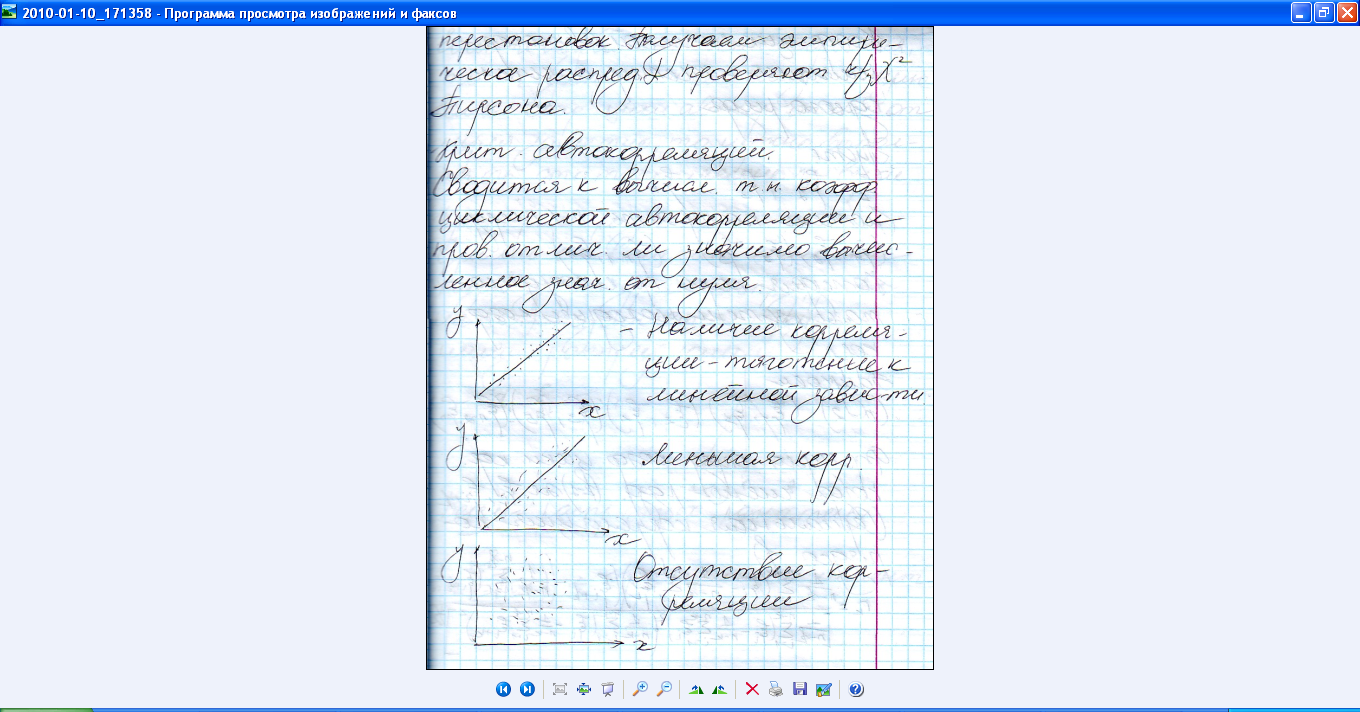 2010-01-10_171358 - Программа просмотра изображений и факсов
перестановок. Получаем эмпири-
ческое распред. и проверяют ч/з χ²
Пирсона.
Крит. автокорреляций.
Сводится к вычисл. т.н. коэфф
циклической автокорреляции и
пров. отлич. ли значимо вычис-
ленное знач. от нуля.
y
x
- Наличие корреля-
ции - тяготение к
линейной завис-ти.
y
x
Меньшая корр.
y
x
Отсутствие кор-
реляции